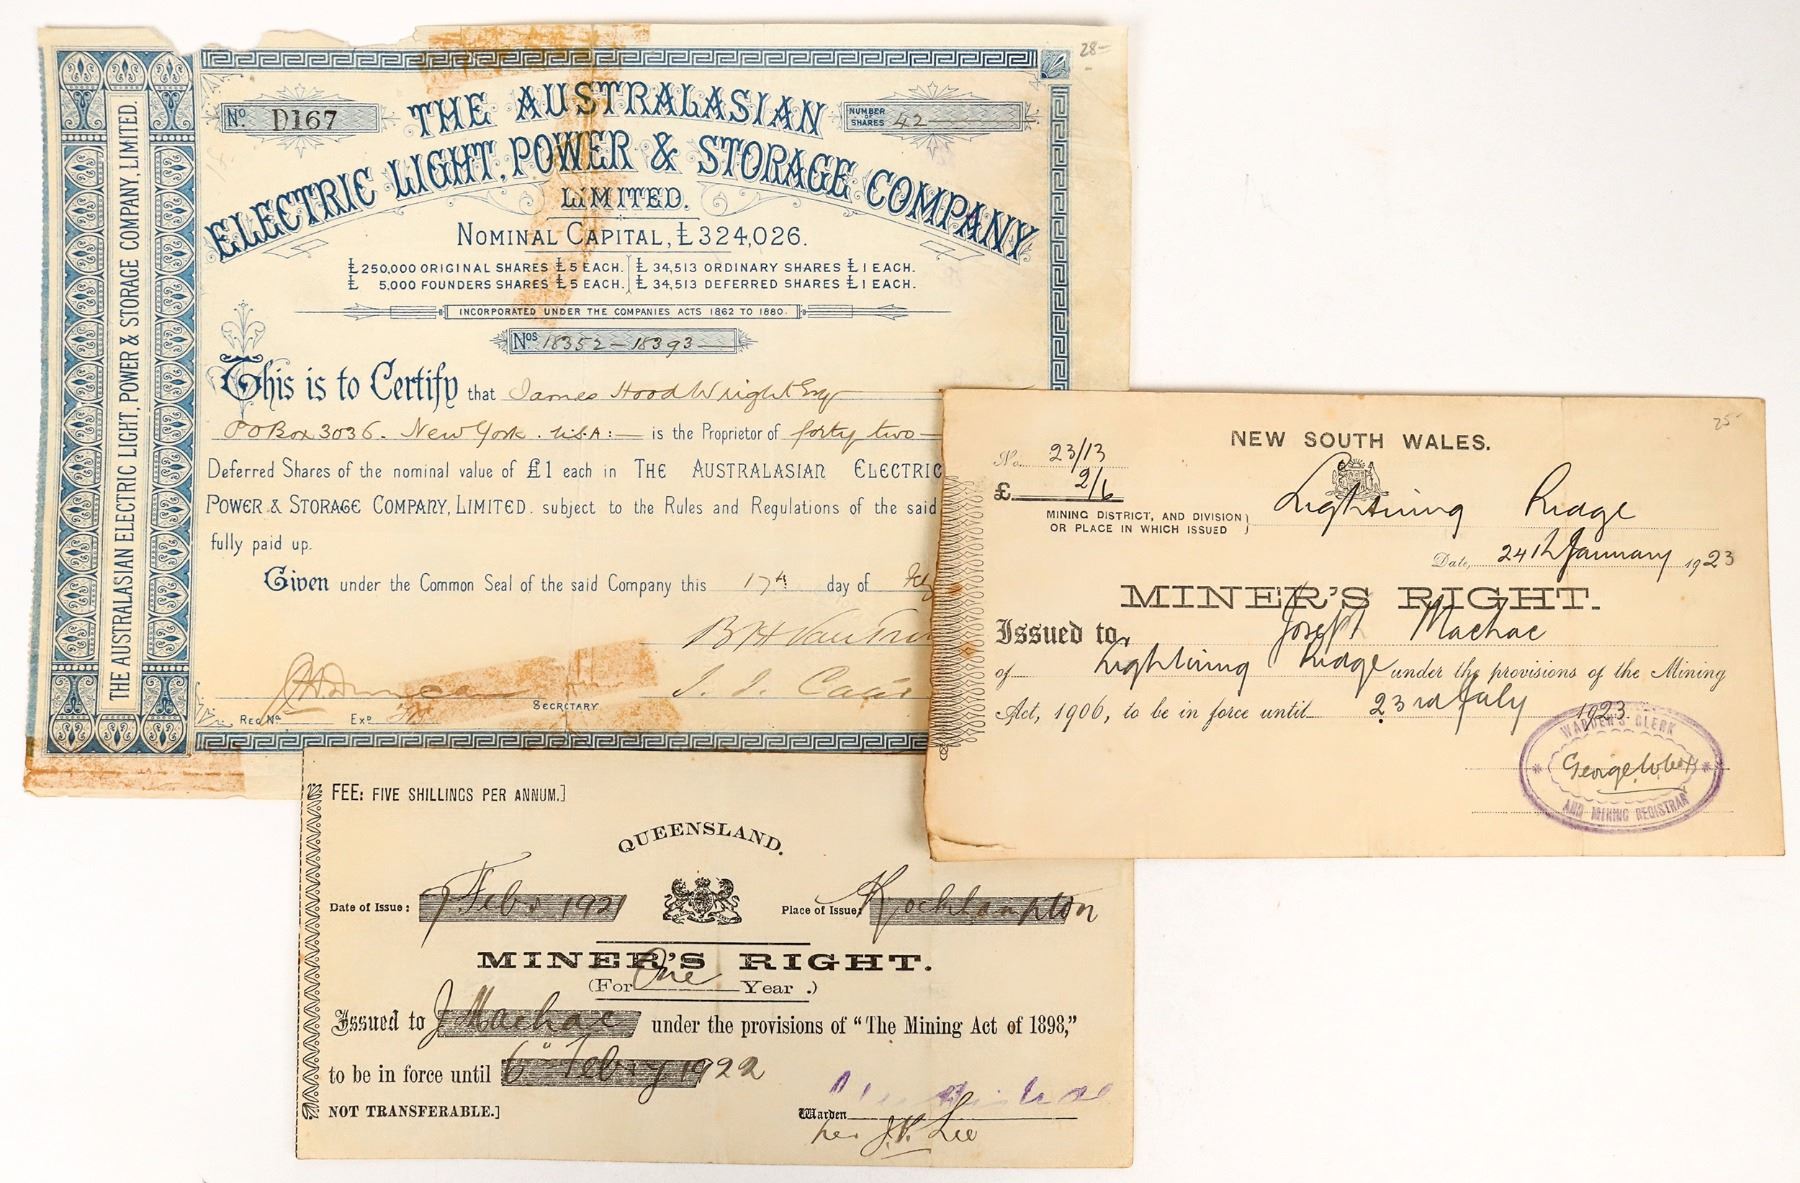 28-
THE AUSTRALASIAN ELECTRIC LIGHT, POWER & STORAGE COMPANY, LIMITED.
No. D167
NUMBER OF SHARES 42
THE AUSTRALASIAN
ELECTRIC LIGHT, POWER & STORAGE COMPANY
LIMITED.
NOMINAL CAPITAL, £324,026.
£250,000 ORIGINAL SHARES £5 EACH. £ 34,513 ORDINARY SHARES £1 EACH.
£ 5,000 FOUNDERS SHARES £5 EACH. £ 34,513 DEFERRED SHARES £1 EACH.
INCORPORATED UNDER THE COMPANIES ACTS 1862 TO 1880.
Nos 18352-18393
This is to Certify that James Hood Wright Esq
PO Box 3036. New York. U.S.A:- is the Proprietor of forty two
Deferred Shares of the nominal value of £1 each in THE AUSTRALASIAN ELECTRIC
POWER & STORAGE COMPANY, LIMITED. subject to the Rules and Regulations of the said
fully paid up.
Given under the Common Seal of the said Company this 17th day of
SECRETARY
REG No EXD
NEW SOUTH WALES.
25-
No. 23/13
£ 2/6
MINING DISTRICT, AND DIVISION
OR PLACE IN WHICH ISSUED
Lightning Ridge
Date, 24th January 1923
MINER'S RIGHT.
Issued to Joseph Machac
of Lightning Ridge under the provisions of the Mining
Act, 1906, to be in force until 23rd July 1923
WARDEN'S CLERK
AND MINING REGISTRAR
FEE: FIVE SHILLINGS PER ANNUM.]
QUEENSLAND.
Date of Issue: 7 Feby 1921
Place of Issue: Rockhampton
MINER'S RIGHT.
(For One Year.)
Issued to J Machac under the provisions of "The Mining Act of 1898,"
to be in force until 6th Febry 1922
NOT TRANSFERABLE.]
Warden
per J.P. Lee